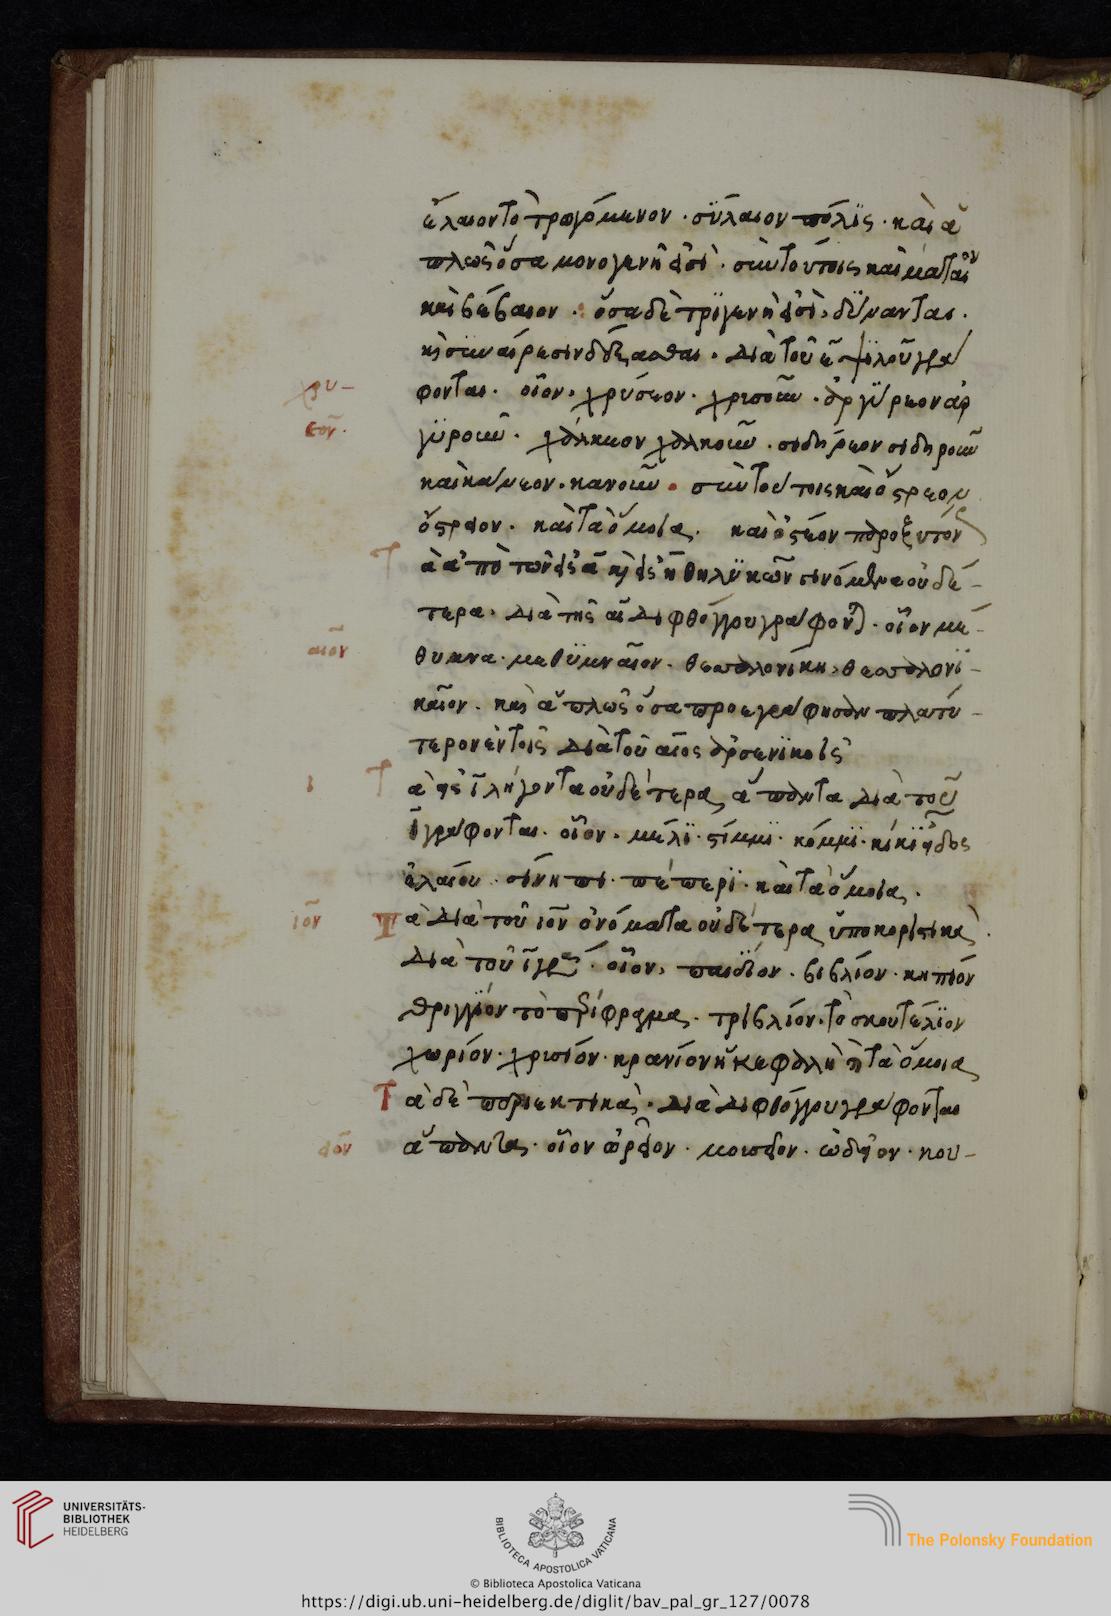 ἔλαιον τὸ τρωγόμενον · σύλαιον πόλις · καὶ ἁ
πλῶς ὅσα μονογενῆ εἰσὶ · σὺν τούτοις καὶ μάταιον
καὶ βέβαιον · ὅσα δὲ τριγενῆ εἰσὶ, δύνανται ·
καὶ συναίρεσιν δέξασθαι · διὰ τοῦ ε̄ ψιλοῦ γρά
φονται · οἷον, χρύσεον · χρυσοῦν · ἀργύρεον ἀρ
χρυ-
γυροῦν · χάλκεον χαλκοῦν · σιδήρεον σιδηροῦν
εον ·
καὶ κάνεον · κανοῦν · σὺν τούτοις καὶ ὄστρεον
ὄστρειον · καὶ τὰ ὅμοια · καὶ ὀστέον παροξυτόν
Τὰ ἀπὸ τῶν εἰς ᾱ καὶ εἰς η̄ θηλυκῶν γινόμενα οὐδέ-
τερα · διὰ τῆς αῑ διφθόγγου γράφονται · οἷον μέ-
αιον
θυμνα · μεθυμναῖον · θεσσαλονίκη, θεσσαλονι-
καῖον · καὶ ἁπλῶς ὅσα προεγράφησαν πλατύ-
τερον ἐν τοῖς διὰ τοῦ αιος ἀρσενικοῖς
ι
Τὰ εἰς ῑ λήγοντα οὐδέτερα, ἅπαντα διὰ τοῦ
ῑ γράφονται · οἷον · μέλι · στίμμι · κόμμι · κίκι εἶδος
ἐλαίου · σίνηπι · πέπερι · καὶ τὰ ὅμοια ·
ιον
Τὰ διὰ τοῦ ιον ὀνόματα οὐδέτερα ὑποκοριστικὰ ·
διὰ τοῦ ῑ γρά · οἷον, παιδίον · βιβλίον · κηπίον
θριγγίον τὸ περίφραγμα · τριβλίον · τὸ σκουτέλιον
χωρίον · χρισίόν · κρανίον ἡ κεφαλὴ καὶ τὰ ὅμοια
Τὰ δὲ περιεκτικὰ · διὰ διφθόγγου γράφονται
ειον
ἅπαντα · οἷον ὡρεῖον · μουσεῖον · ὠδεῖον · κου-
UNIVERSITÄTS-
BIBLIOTHEK
HEIDELBERG
BIBLIOTECA APOSTOLICA VATICANA
The Polonsky Foundation
© Biblioteca Apostolica Vaticana
https://digi.ub.uni-heidelberg.de/diglit/bav_pal_gr_127/0078